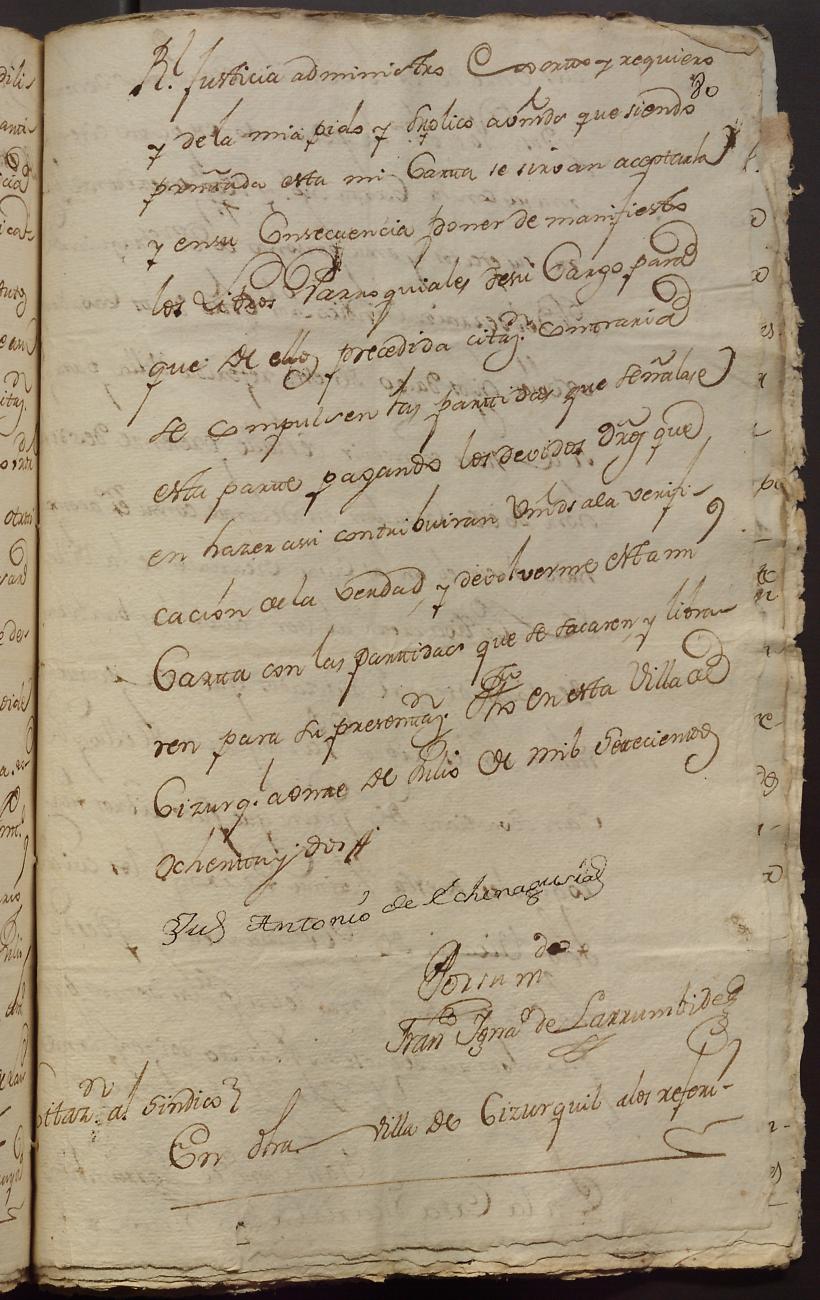 Rl. Justicia administro Exorto y requiero
80
y de la mia pido y suplico a Vmds que siendo
presentada esta mi Carta se sirvan aceptarla
y en su Consecuencia poner de manifiesto
los Libros Parroquiales de su Cargo para
que de ellos precedida citazn. contraria
se compulsen las partidas que señalase
esta parte pagando los devidos drõs que
en hazer assi contribuiran Vmds ala verifi-
cación de la verdad, y devolverme esta mi
Carta con las partidas que se sacaren, y libra-
ren para su presentazn. Fho en esta Villa de
Cizurql. a onze de Julio de mil setecientos
ochenta y dos
Jun Antonio de Echenagusia
Por su mdo
Franco Ignao de Larrumbide
Zitazn. al Sindico
En dha Villa de Cizurquil alos referi-